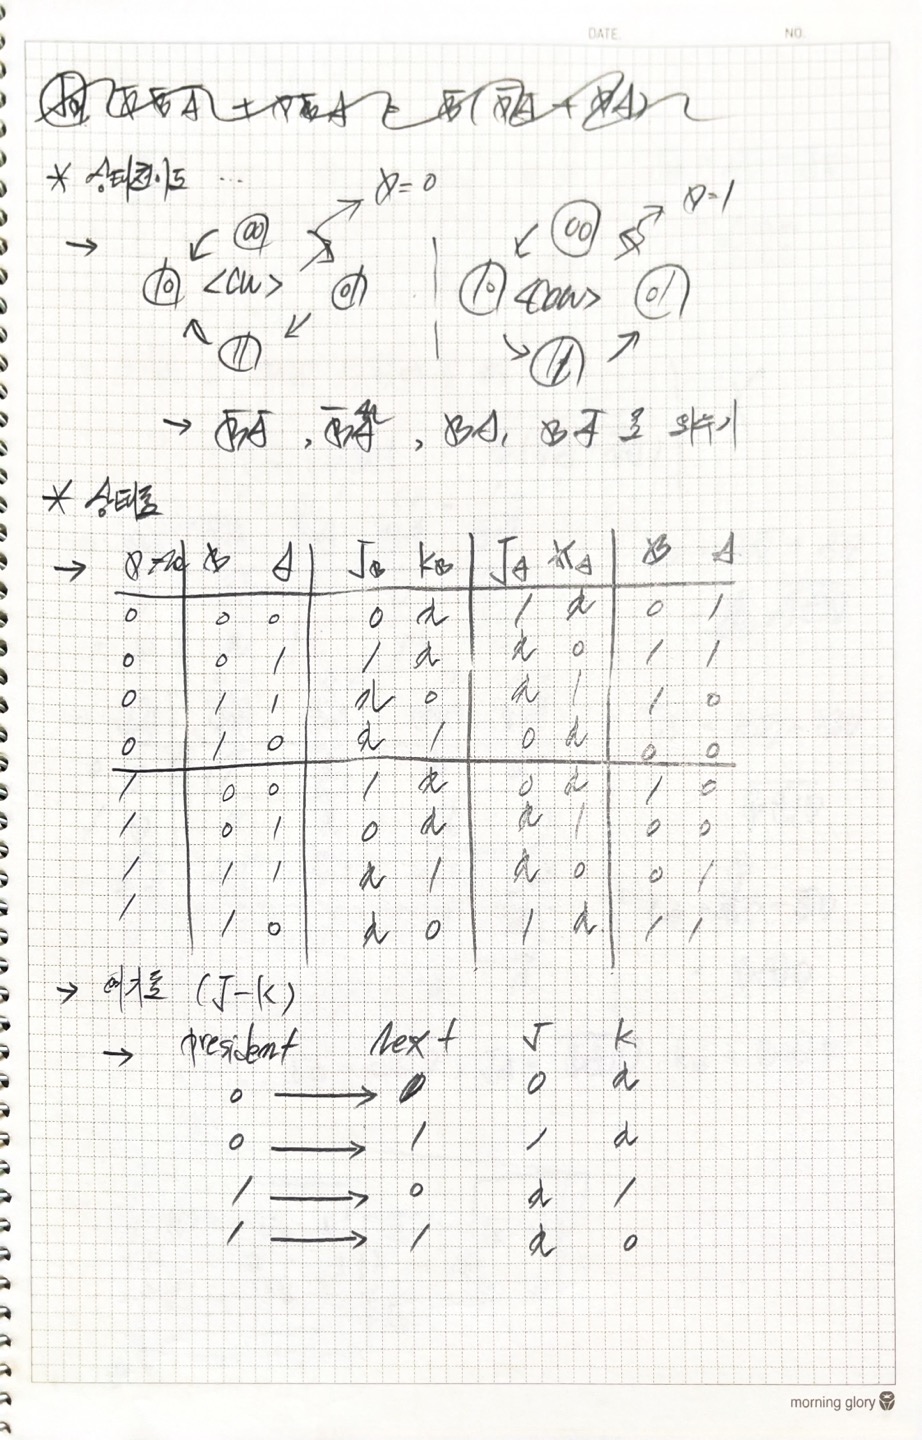 DATE. NO.
* 상태천이도 ...
→ 00 X=0 00 X=1
10 <CW> 01 10 <CCW> 01
11 11
→ B̅A̅, B̅A, BA, BA̅ 로
* 상태표
→ B A J_B K_B J_A K_A B A
0 0 0 0 d 1 d 0 1
0 0 1 1 d d 0 1 1
0 1 1 d 0 d 1 1 0
0 1 0 d 1 0 d 0 0
1 0 0 1 d 0 d 1 0
1 0 1 0 d d 1 0 0
1 1 1 d 1 d 0 0 1
1 1 0 d 0 1 d 1 1
→ 여기표 (J-K)
→ president next J K
0 → 0 0 d
0 → 1 1 d
1 → 0 d 1
1 → 1 d 0
morning glory